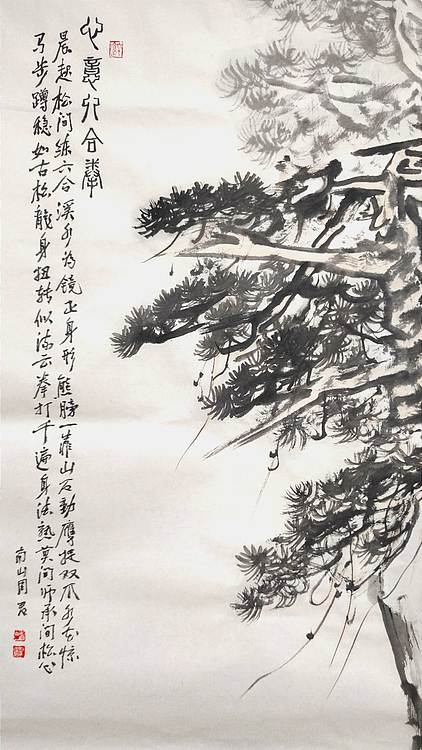 心意六合拳
晨起松间练六合溪水为镜正身形熊膀一靠山石动鹰捉双爪水花惊
马步蹲稳如古松龙身扭转似流云拳打千遍身法熟莫问师承问松心
南山周